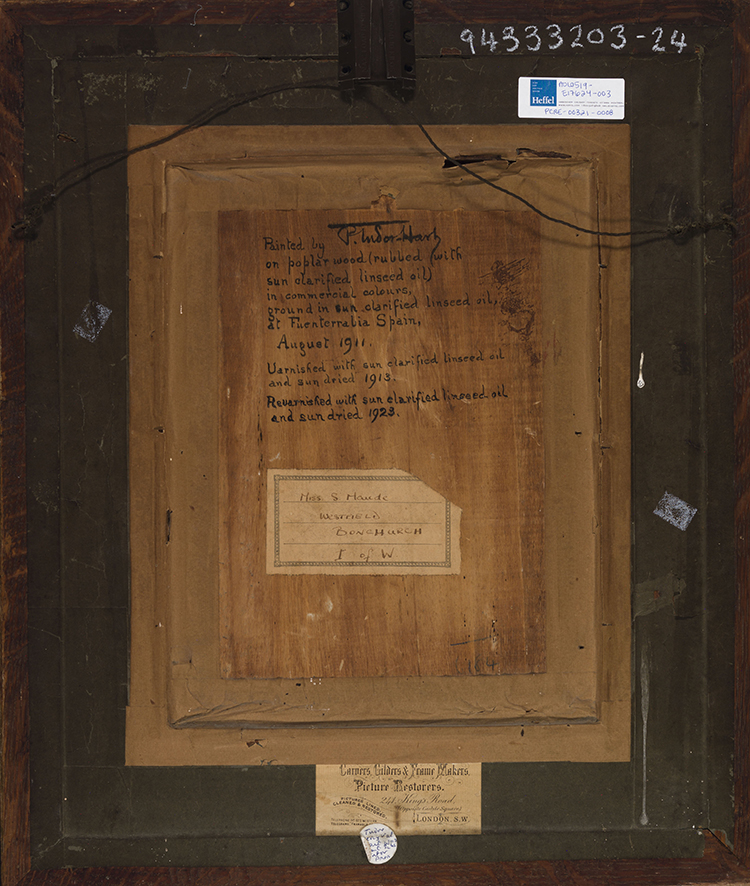 94333203-24
Heffel
PCRE-00321-0008
Painted by P. Tudor-Hart
on poplar wood (rubbed with
sun clarified linseed oil)
in commercial colours,
ground in sun clarified linseed oil,
at Fuenterrabia Spain,
August 1911.
Varnished with sun clarified linseed oil
and sun dried 1913.
Revarnished with sun clarified linseed oil
and sun dried 1923.
Miss. S Maude
Westfield
BONCHURCH
I of W
Carvers, Gilders & Frame Makers,
Picture Restorers.
PICTURES LINED
CLEANED & RESTORED
241 King's Road,
LONDON. S.W.